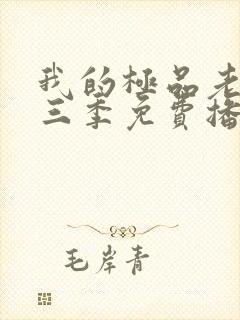 我的極品老
三季免費播
毛岸青